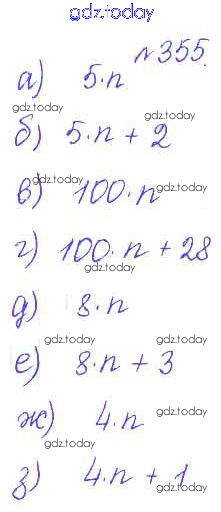 gdz.today
№355.
а) 5·n
gdz.today gdz.today
б) 5·n + 2
gdz.today gdz.today
в) 100·n
gdz.today
г) 100·n + 28
gdz.today
д) 8·n
gdz.today gdz.today
е) 8·n + 3
gdz.today gdz.today
ж) 4·n
gdz.today
з) 4·n + 1
gdz.today